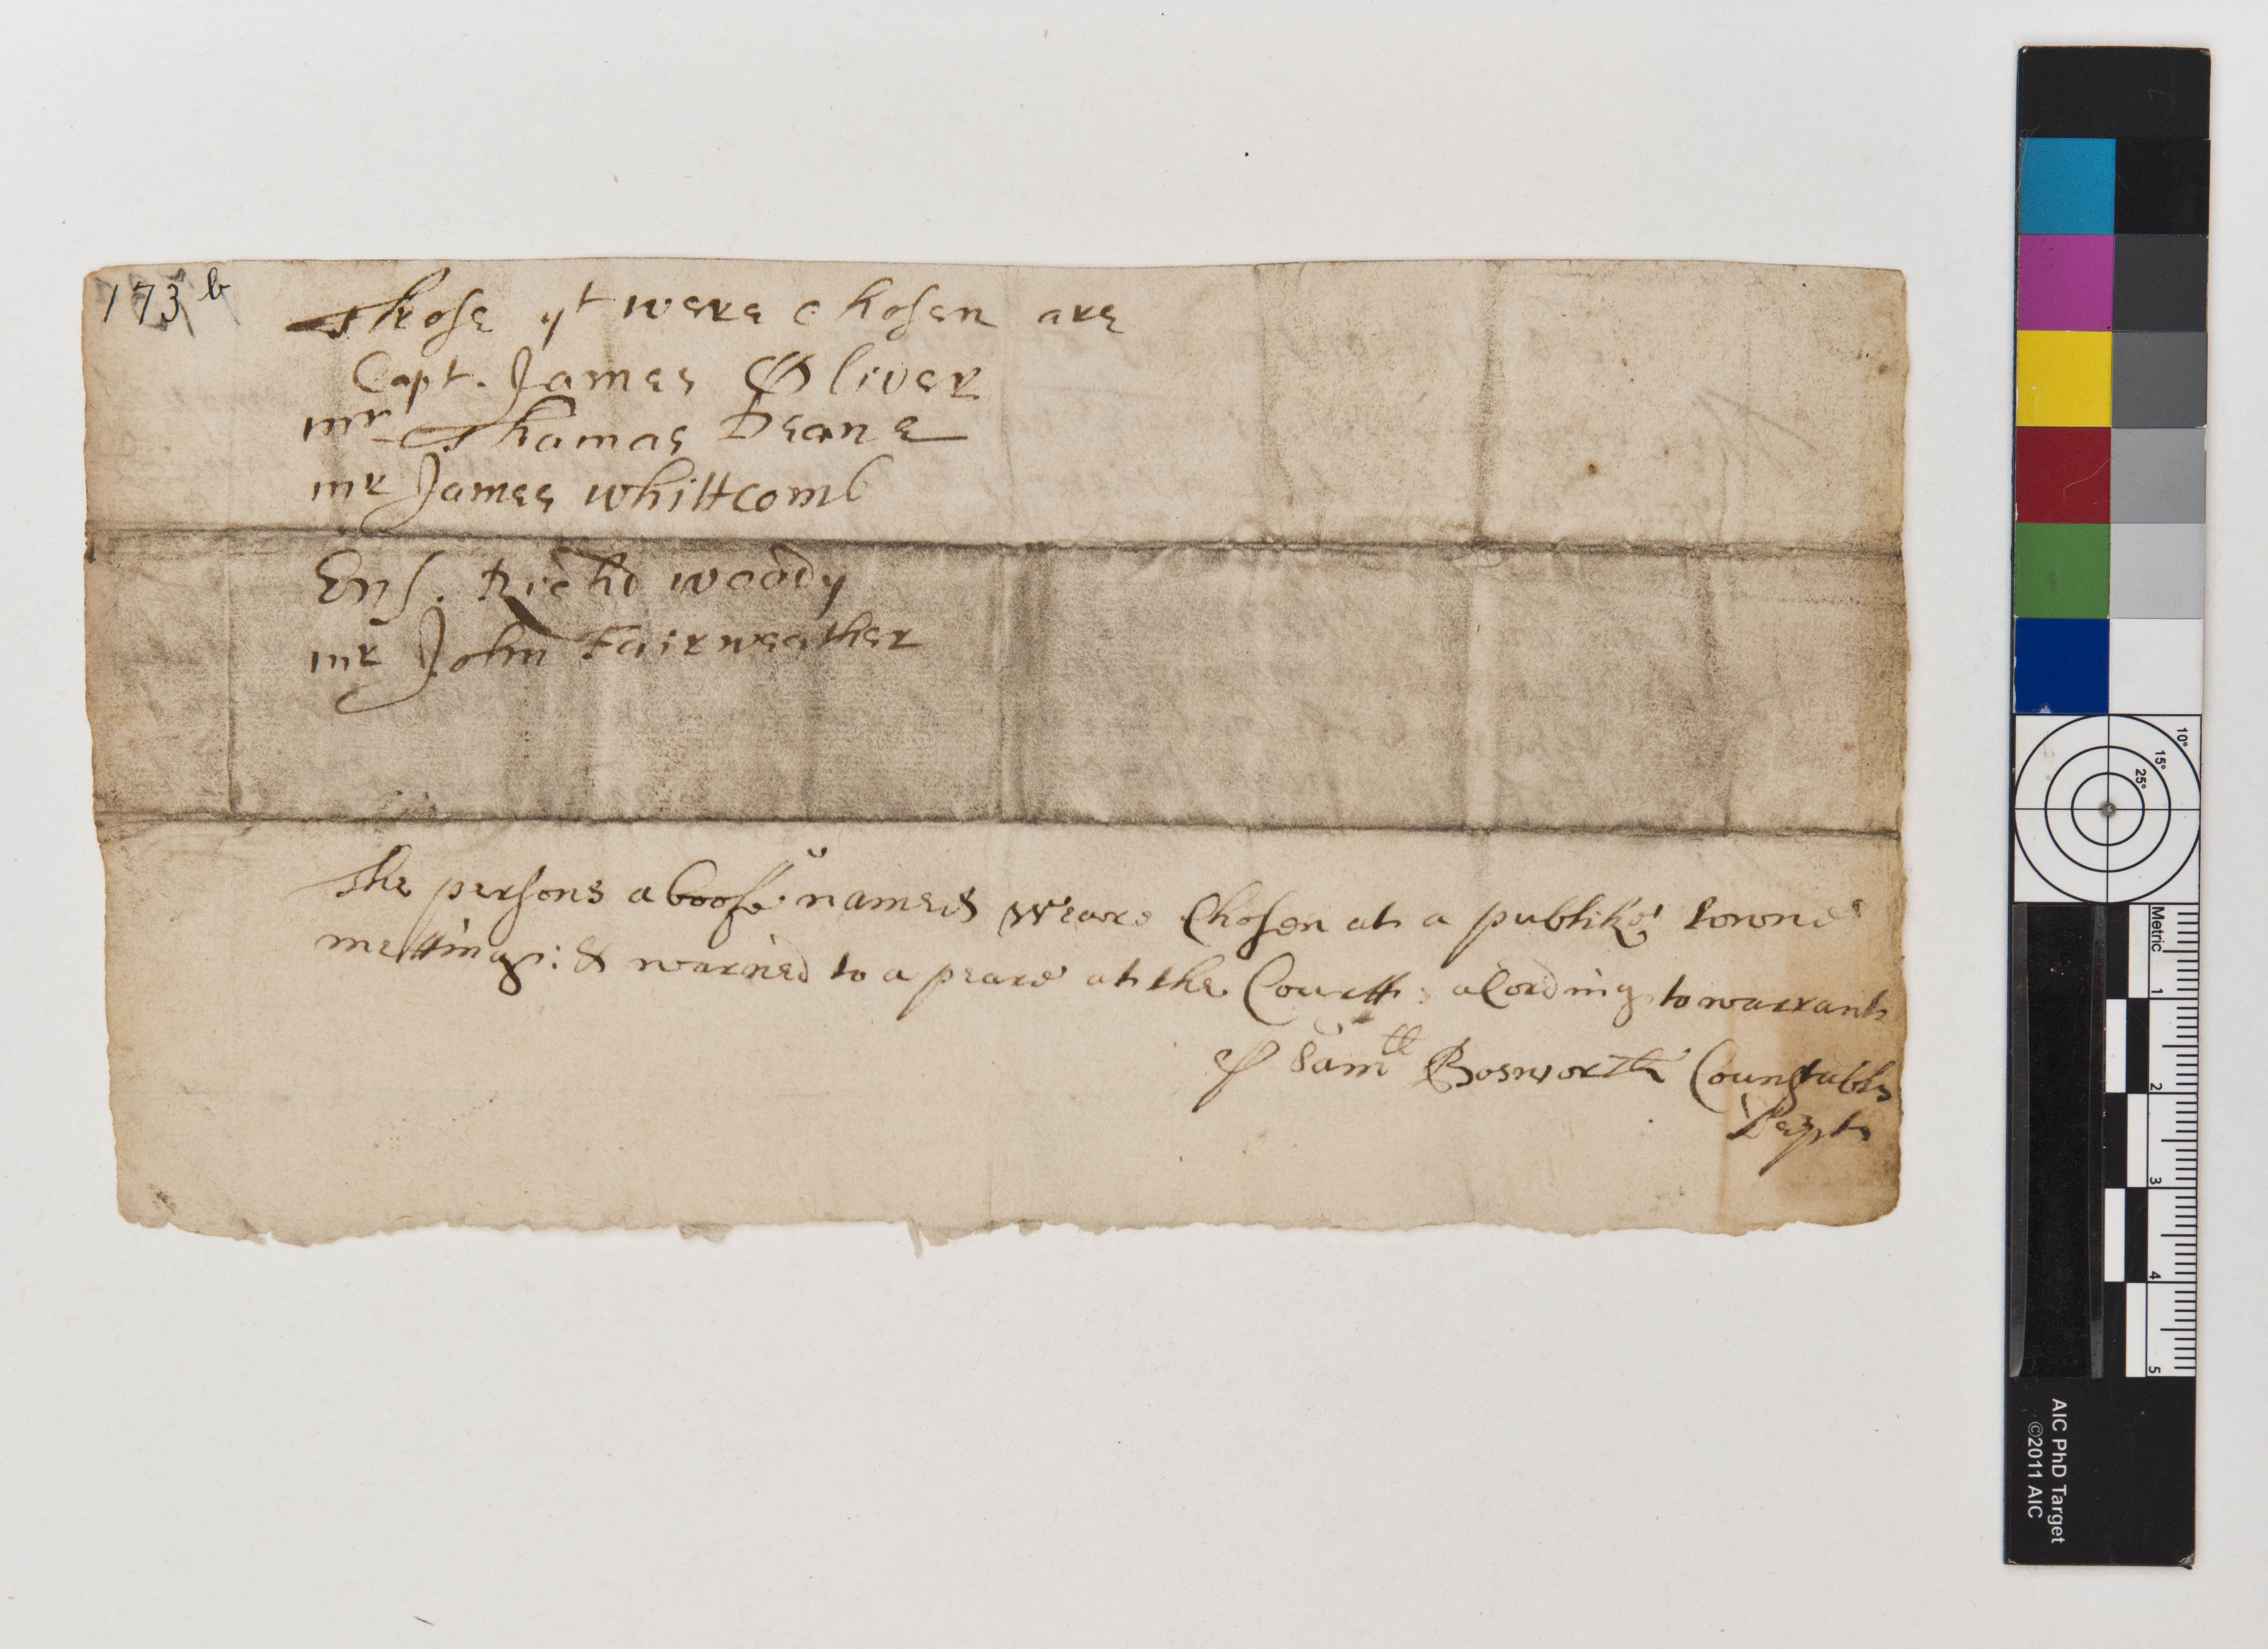 173 b
Those yt were chosen are
Capt. James Oliver
mr Thomas Deane
mr James Whittcomb
Ens. Richd Woody
mr John Fairweather
The persons aboofe named weare Chosen at a publike towne
metting: & warned to a peare at the Courtt: acording to warrant
p Samll Bosworth Counstable
Dept
10°
15°
25°
Metric
1
2
3
4
5
AIC PhD Target
©2011 AIC